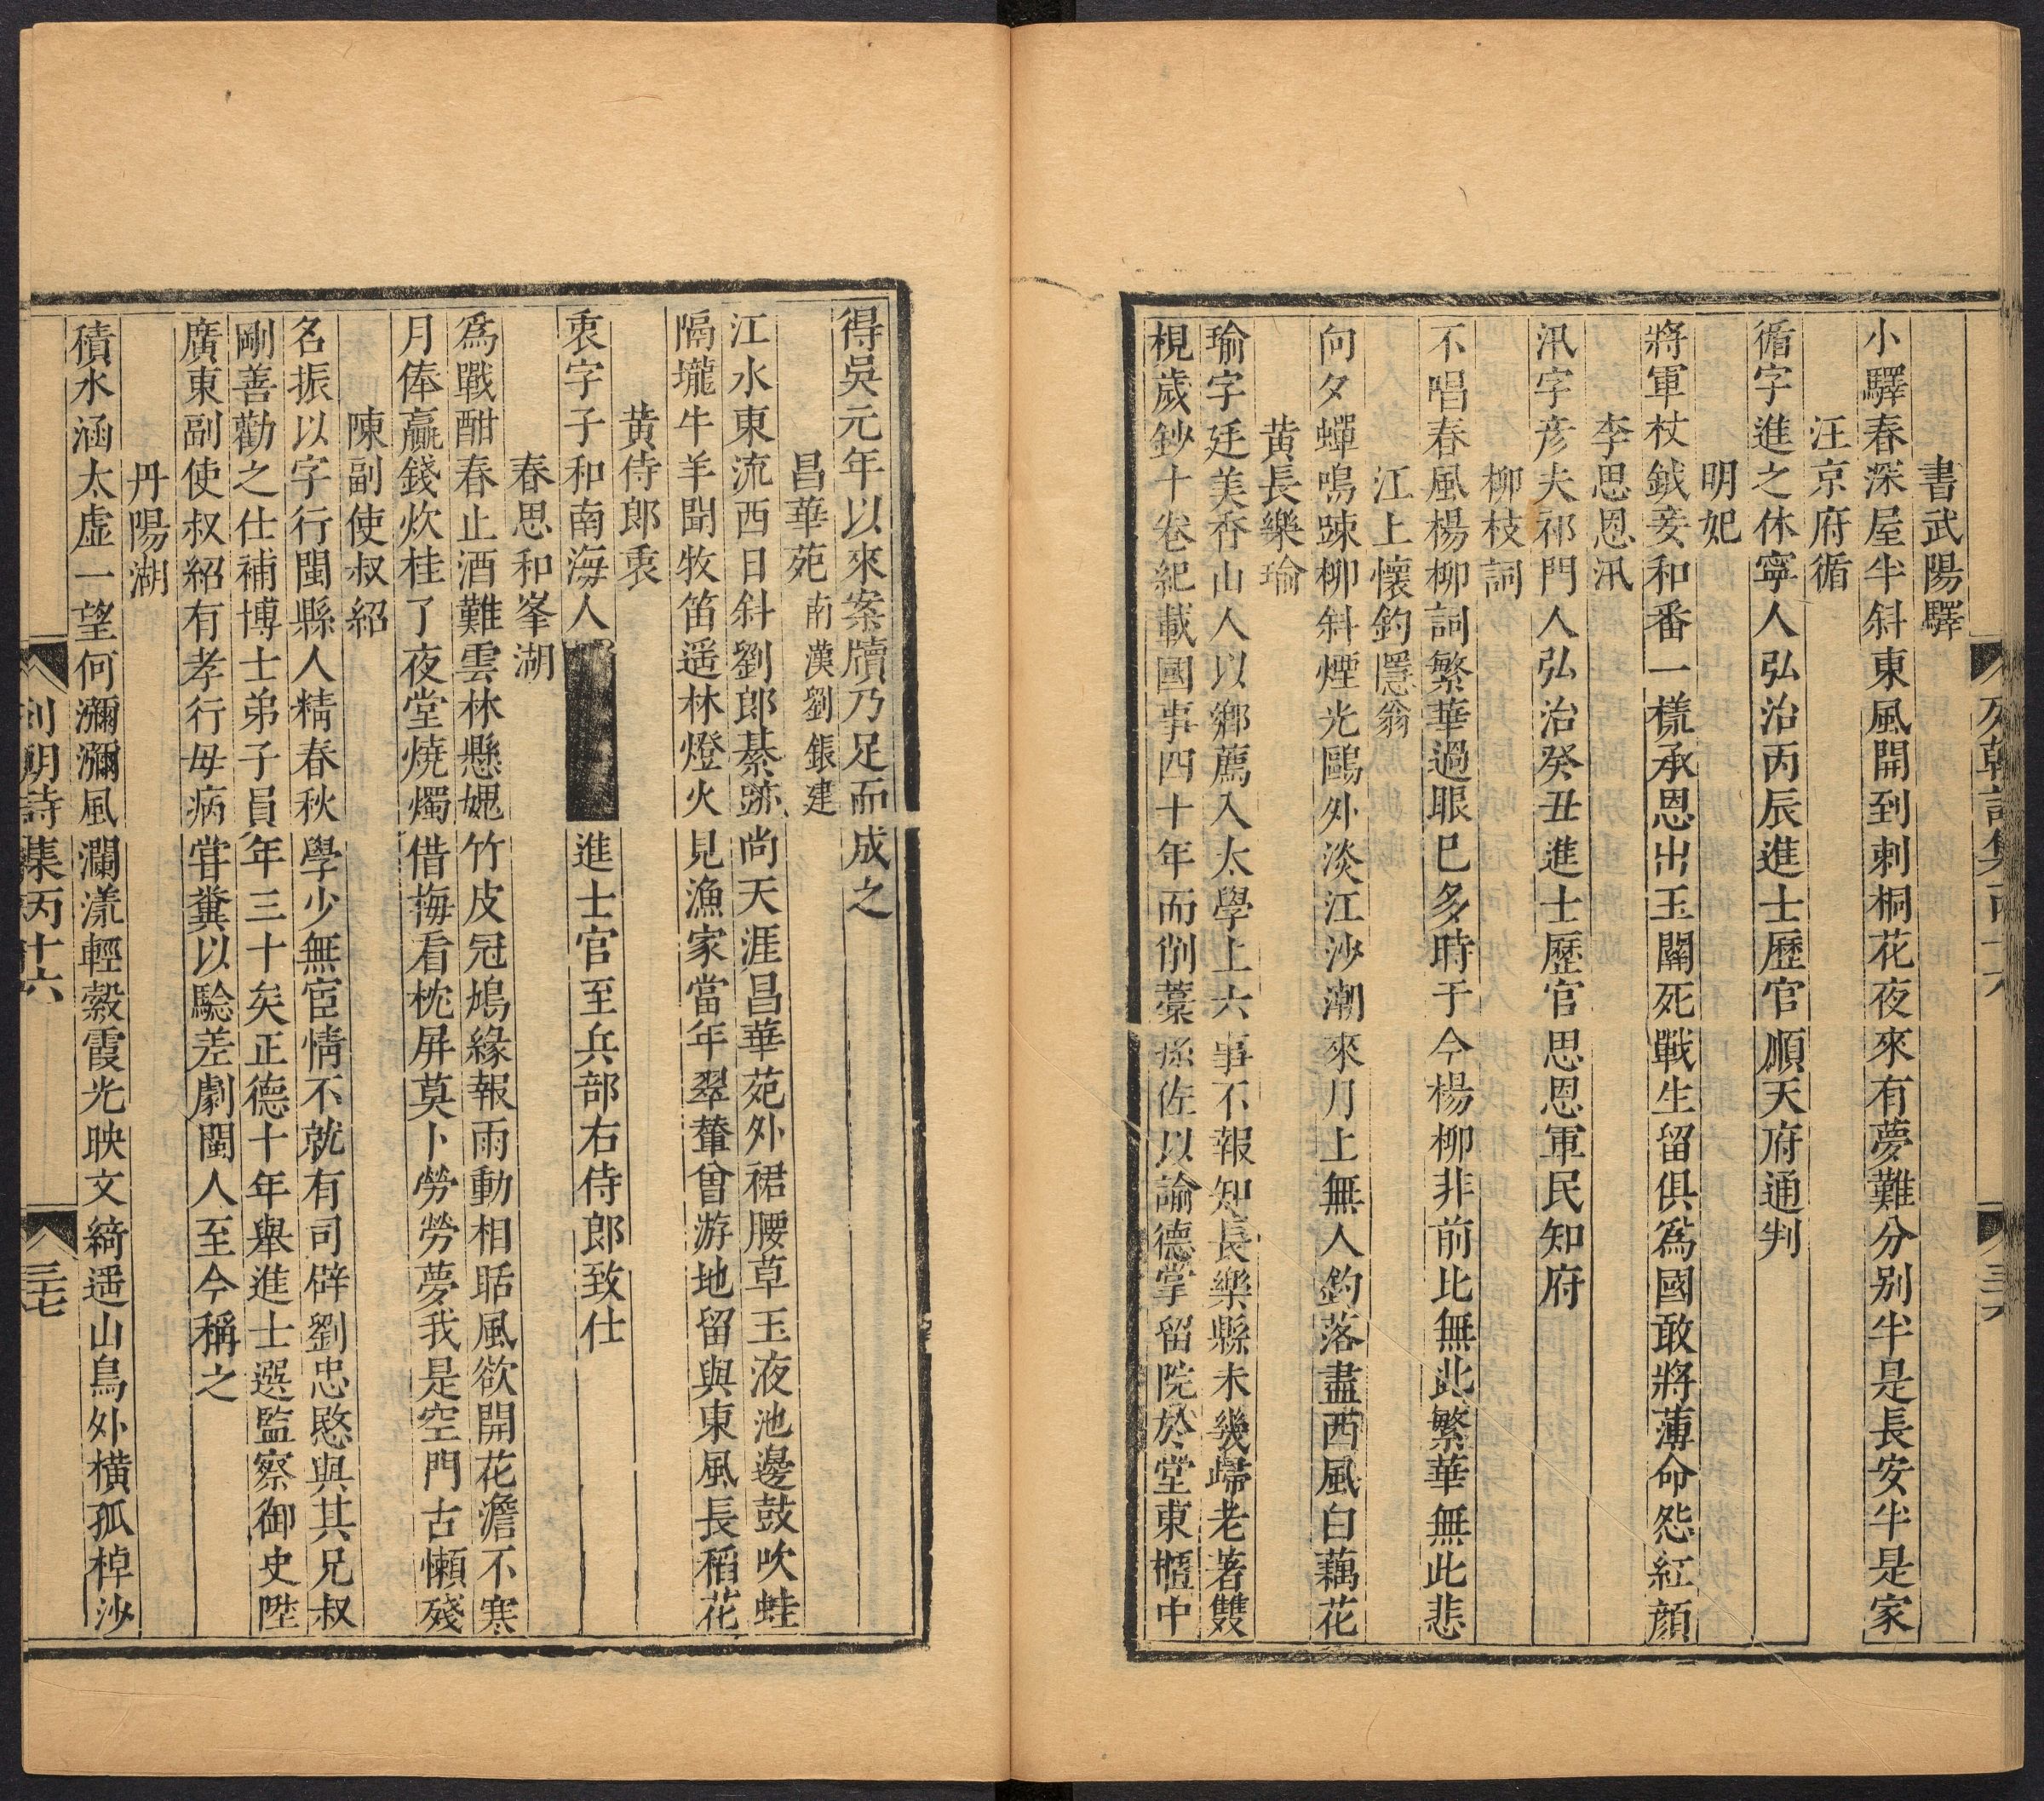 書武陽驛
小驛春深屋半斜東風開到刺桐花夜來有夢難分别半是長安半是家
汪京府循
循字進之休寧人弘治丙辰進士歷官順天府通判
明妃
將軍杖鉞妾和番一樣承恩出玉關死戰生留俱爲國敢將薄命怨紅顔
李思恩汛
汛字彦夫祁門人弘治癸丑進士歷官思恩軍民知府
柳枝詞
不唱春風楊柳詞繁華過眼已多時于今楊柳非前比無此繁華無此悲
江上懷釣隱翁
向夕蟬鳴踈柳斜煙光鷗外淡江沙潮來月上無人釣落盡西風白藕花
黄長樂瑜
瑜字廷美香山人以鄉薦入太學上六事不報知長樂縣未幾歸老著雙
槐歲鈔十卷紀載國事四十年而削藁孫佐以諭德掌留院於堂東櫃中
列朝詩集丙十六
三六
得吳元年以來案牘乃足而成之
昌華苑 南漢劉鋹建
江水東流西日斜劉郎綦跡尚天涯昌華苑外裙腰草玉液池邊鼓吹蛙
隔壠牛羊聞牧笛遥林燈火見漁家當年翠輦曾游地留與東風長稻花
黄侍郎衷
衷字子和南海人進士官至兵部右侍郎致仕
春思和峯湖
爲戰酣春止酒難雲林懸媿竹皮冠鳩緣報雨動相聒風欲開花澹不寒
月俸贏錢炊桂了夜堂燒燭借梅看枕屏莫卜勞勞夢我是空門古懶殘
陳副使叔紹
名振以字行閩縣人精春秋學少無宦情不就有司辟劉忠愍與其兄叔
剛善勸之仕補博士弟子員年三十矣正德十年舉進士選監察御史陞
廣東副使叔紹有孝行母病甞糞以驗差劇閩人至今稱之
丹陽湖
積水涵太虛一望何瀰瀰風瀾漾輕縠霞光映文綺遥山鳥外橫孤棹沙
列朝詩集丙十六
三七